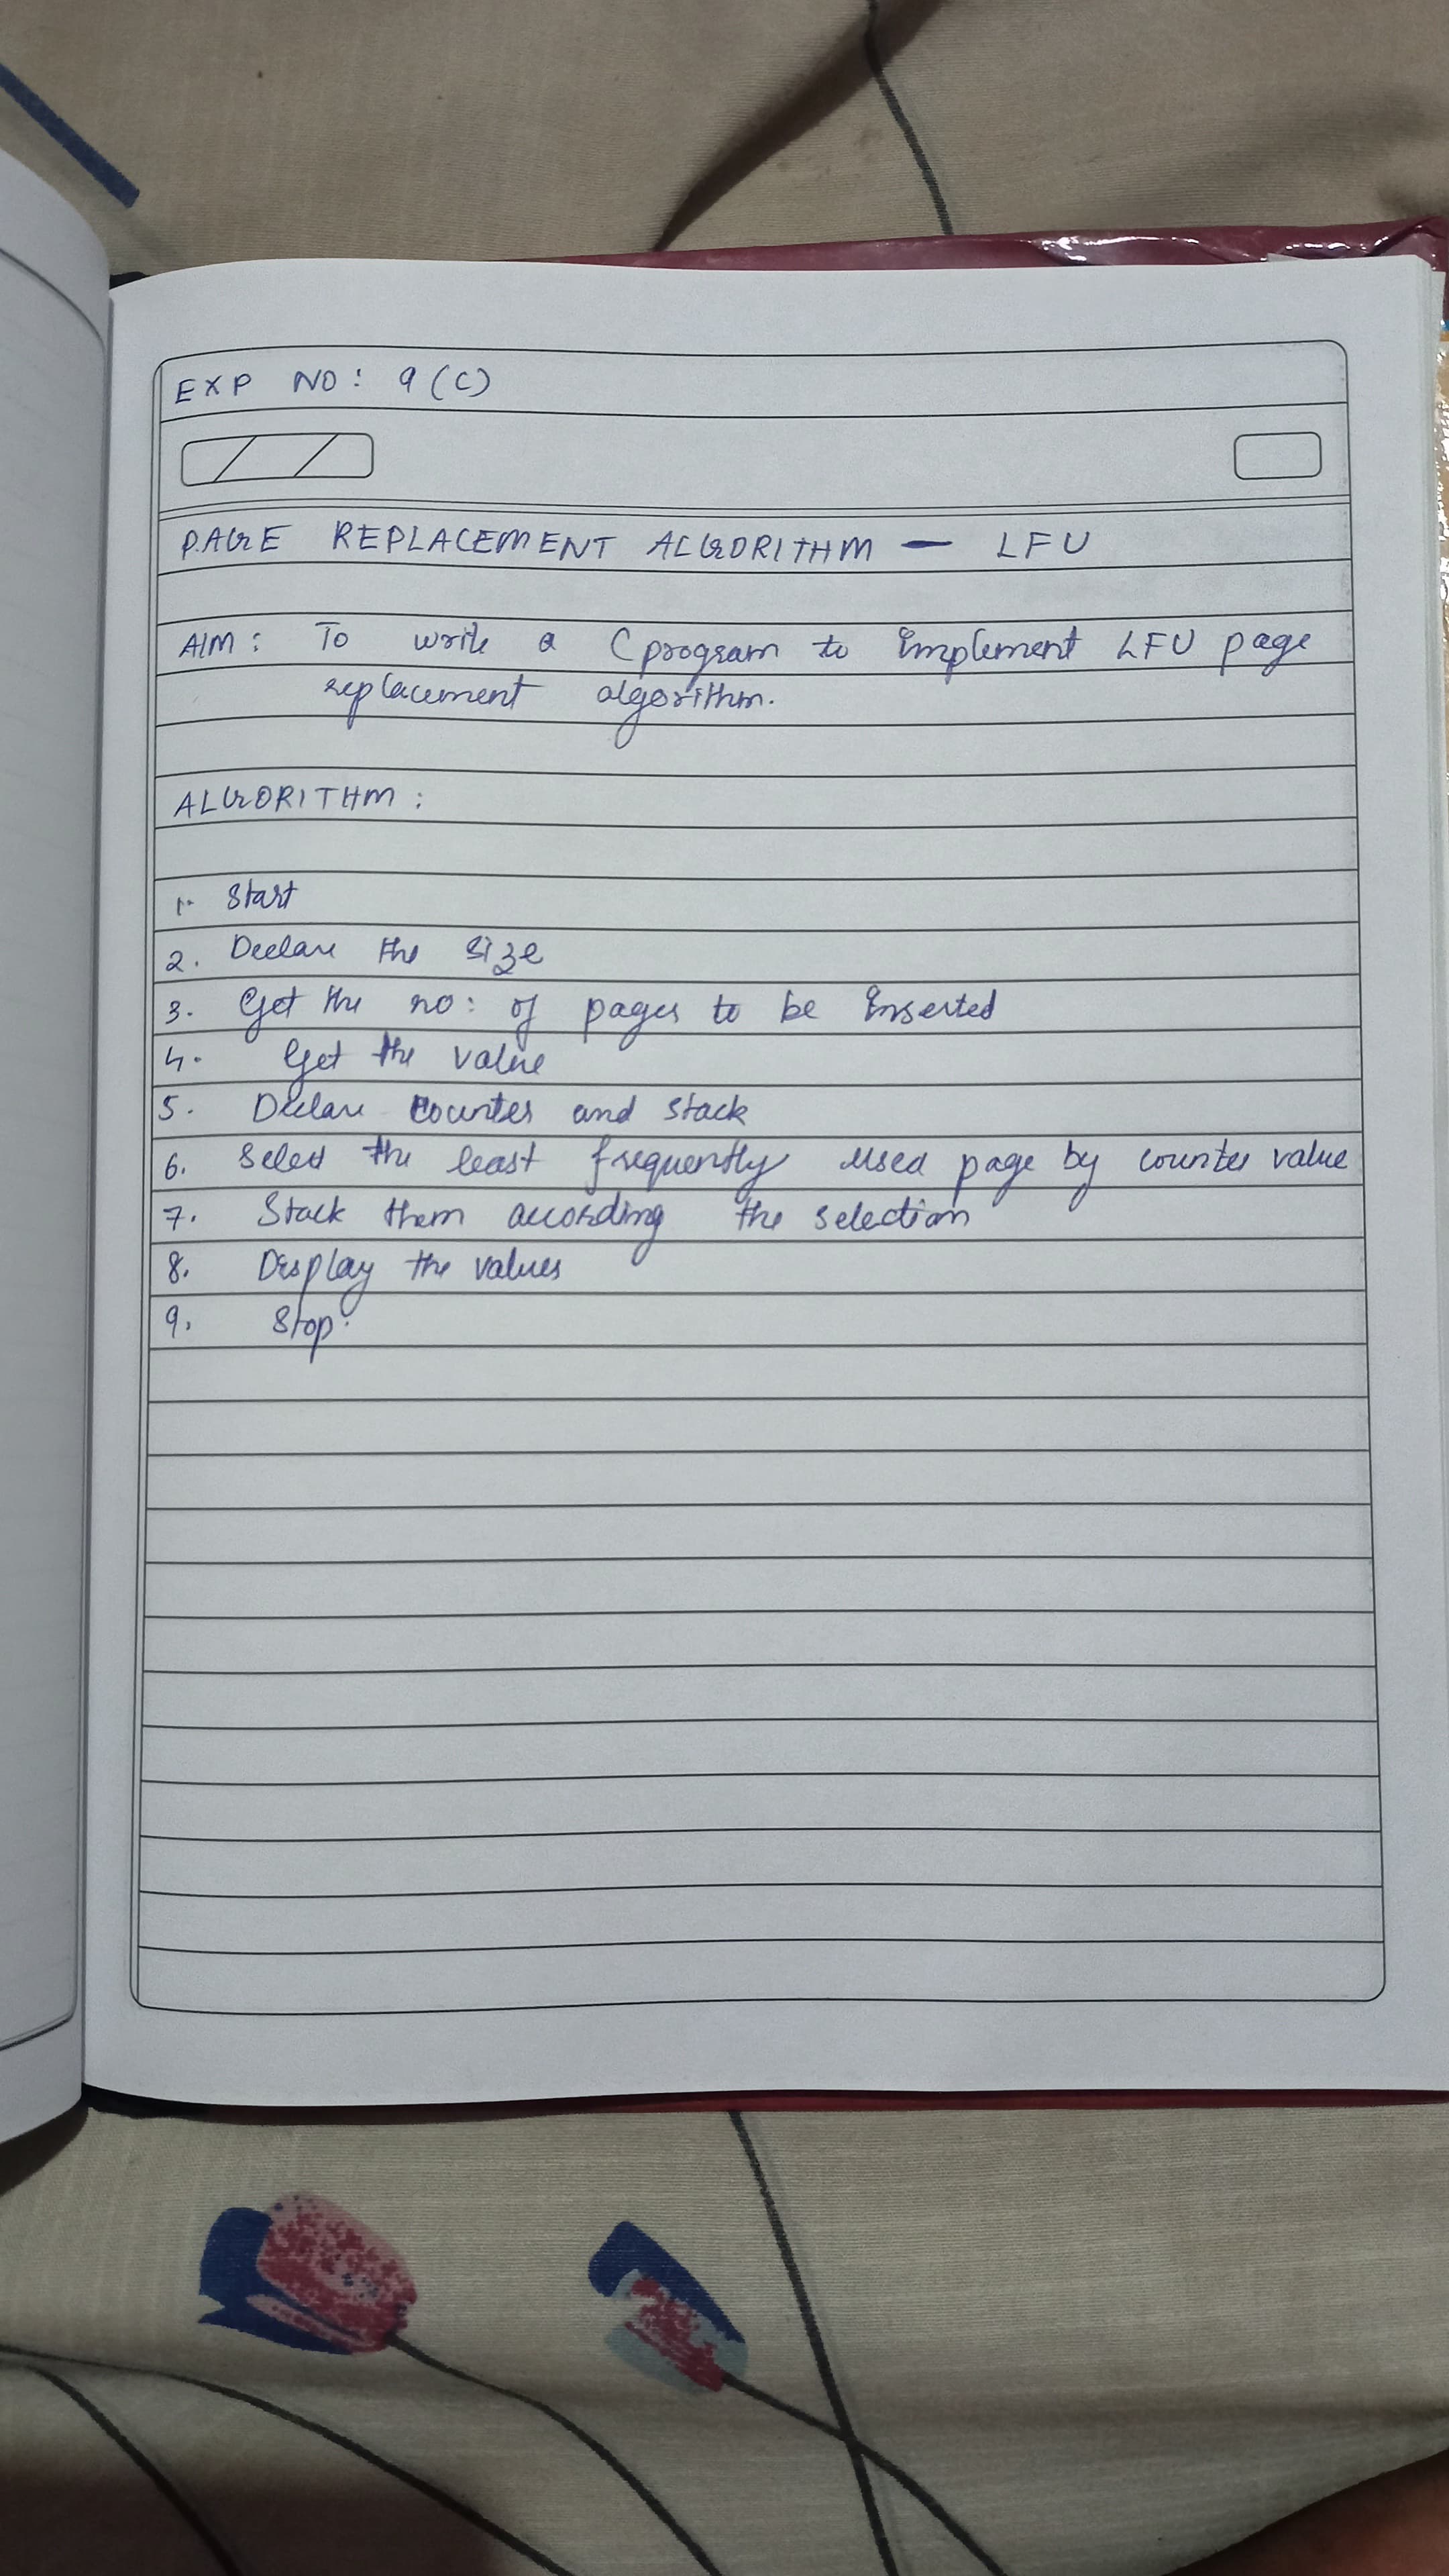 EXP NO: 9 (C)
PAGE REPLACEMENT ALGORITHM — LFU
AIM: To write a C program to implement LFU page
replacement algorithm.
ALGORITHM:
1. Start
2. Declare the size
3. Get the no: of pages to be inserted
4. Get the value
5. Declare counter and stack
6. Select the least frequently used page by counter value
7. Stack them according the selection
8. Display the values
9. Stop.